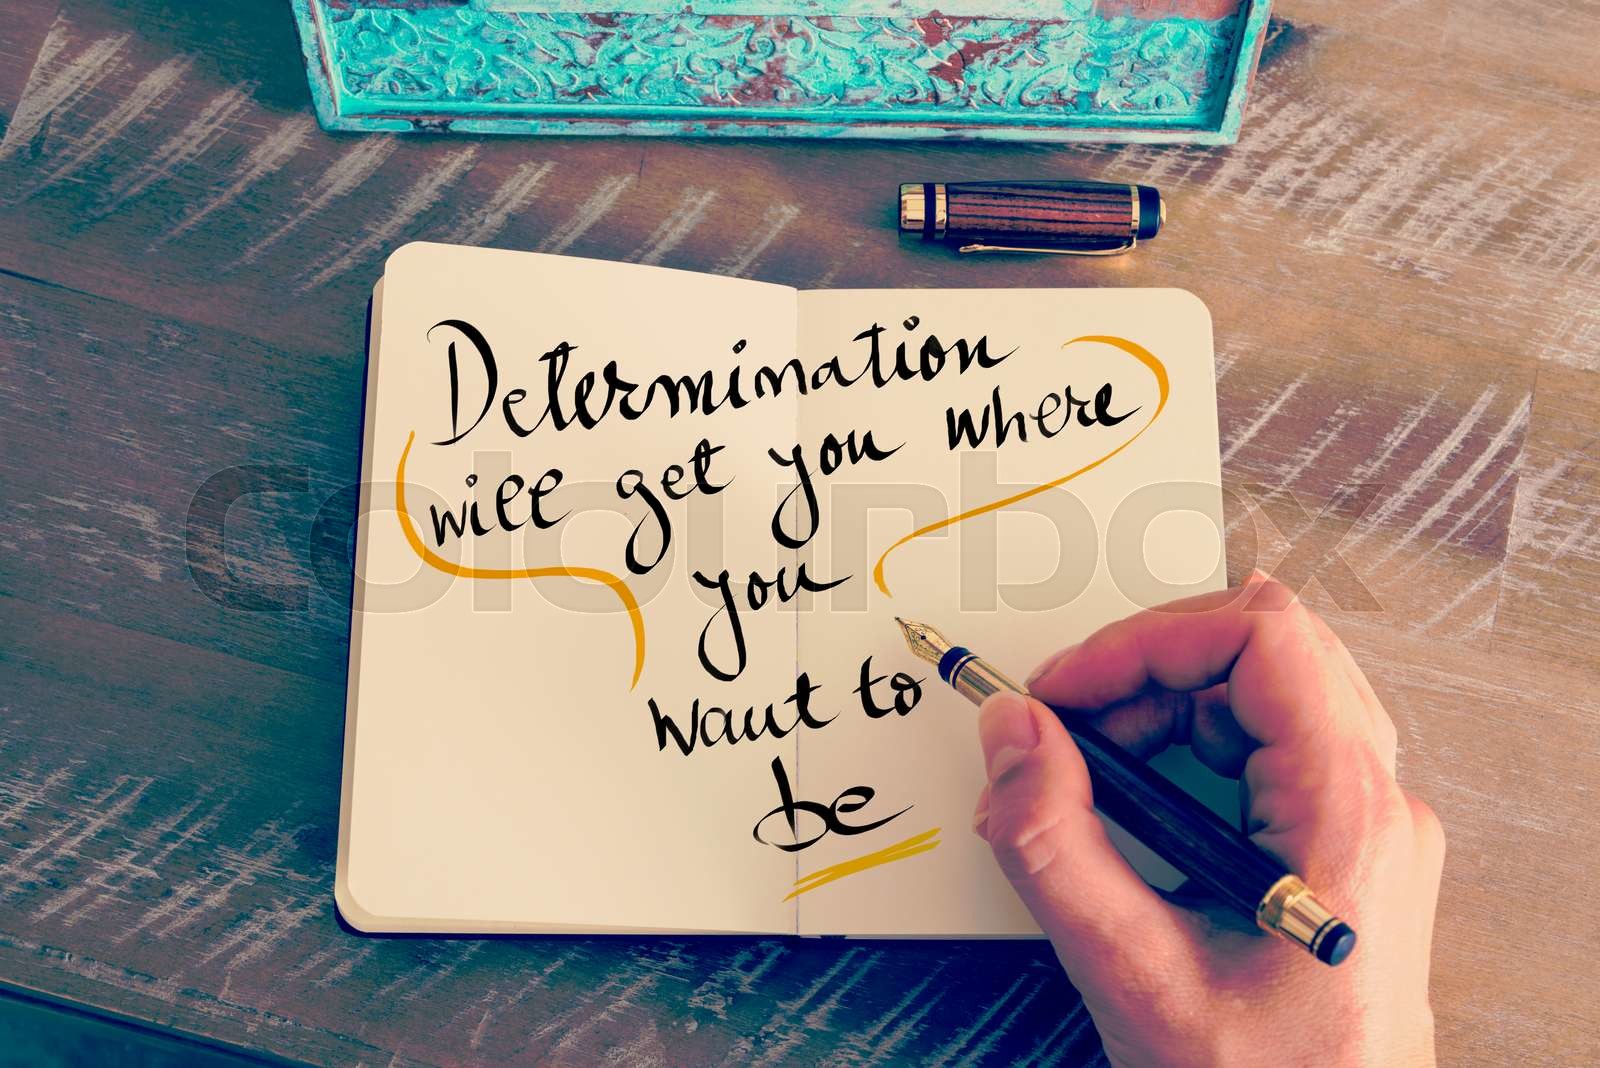 Determination
will get you where
you
want to
be
colourbox